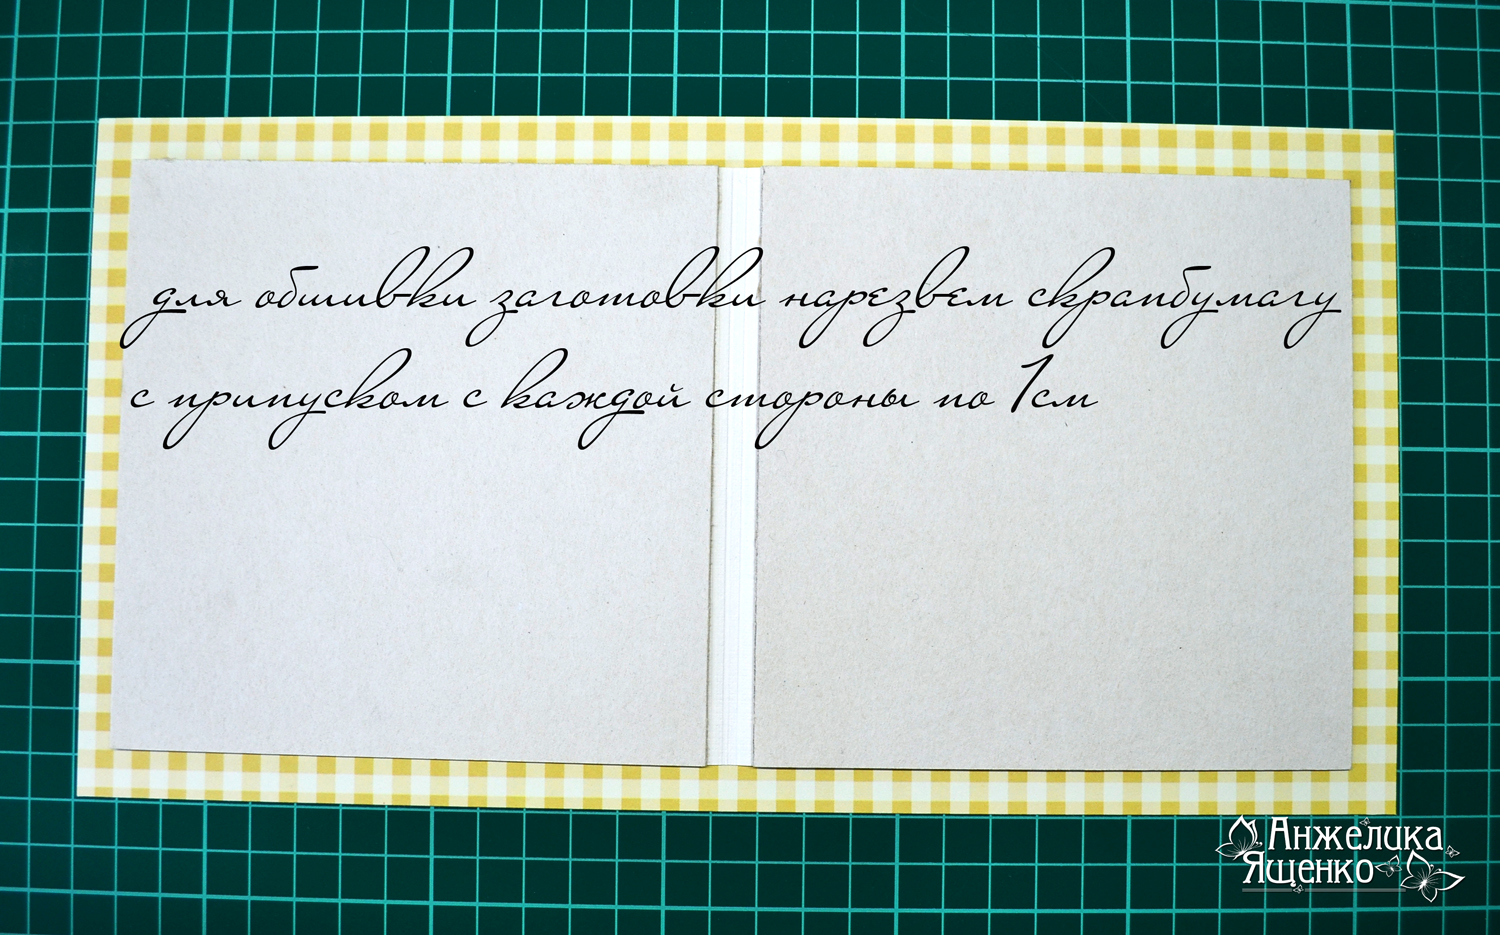 для обшивки заготовки нарезвем скрапбумагу
с припуском с каждой стороны по 1см
Анжелика
Ященко